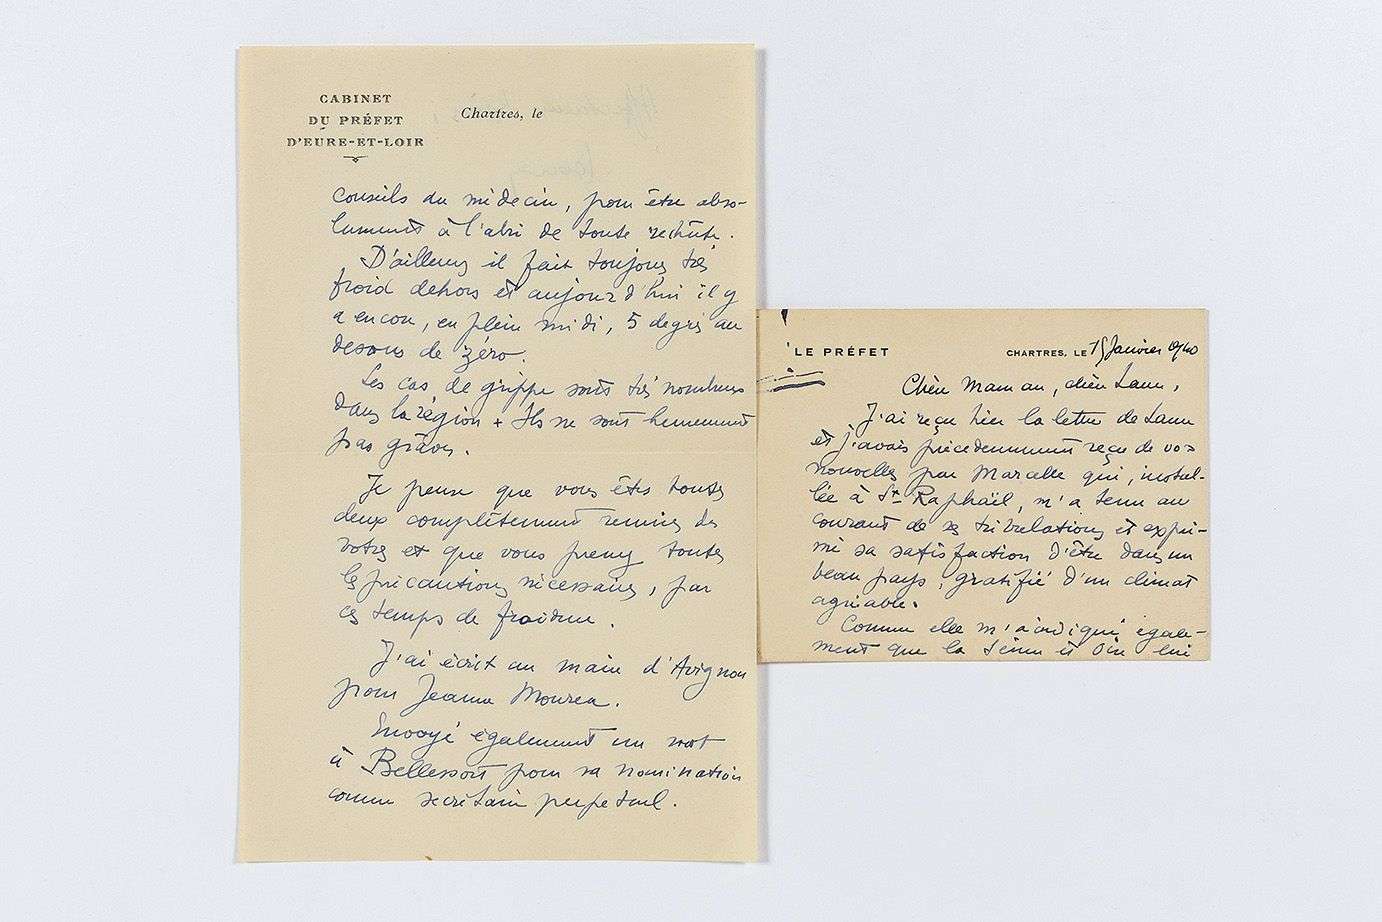 CABINET
DU PRÉFET
D'EURE-ET-LOIR
Chartres, le
conseils du médecin, pour être abso-
lument à l'abri de toute rechûte.
D'ailleurs il fait toujours très
froid dehors et aujourd'hui il y
a encore, en plein midi, 5 degrés au
dessous de zéro.
Les cas de grippe sont très nombreux
dans la région + Ils ne sont heureusement
pas graves.
Je pense que vous êtes toutes
deux complètement remises des
votres et que vous prenez toutes
les précautions nécessaires, par
ces temps de froidure.
J'ai écrit au maire d'Avignon
pour Jeanne Mourea.
Envoyé également un mot
à Bellessort pour sa nomination
comme secrétaire perpétuel.
LE PRÉFET
CHARTRES, LE 15 Janvier 1940
Chère Maman, chère Laure,
J'ai reçu hier la lettre de Laure
et j'avais précédemment reçu de vos
nouvelles par Marcelle qui, instal-
lée à St Raphaël, m'a tenu au
courant de ses tribulations et expri-
mé sa satisfaction d'être dans un
beau pays, gratifié d'un climat
agréable.
Comme elle m'a indiqué égale-
ment que la